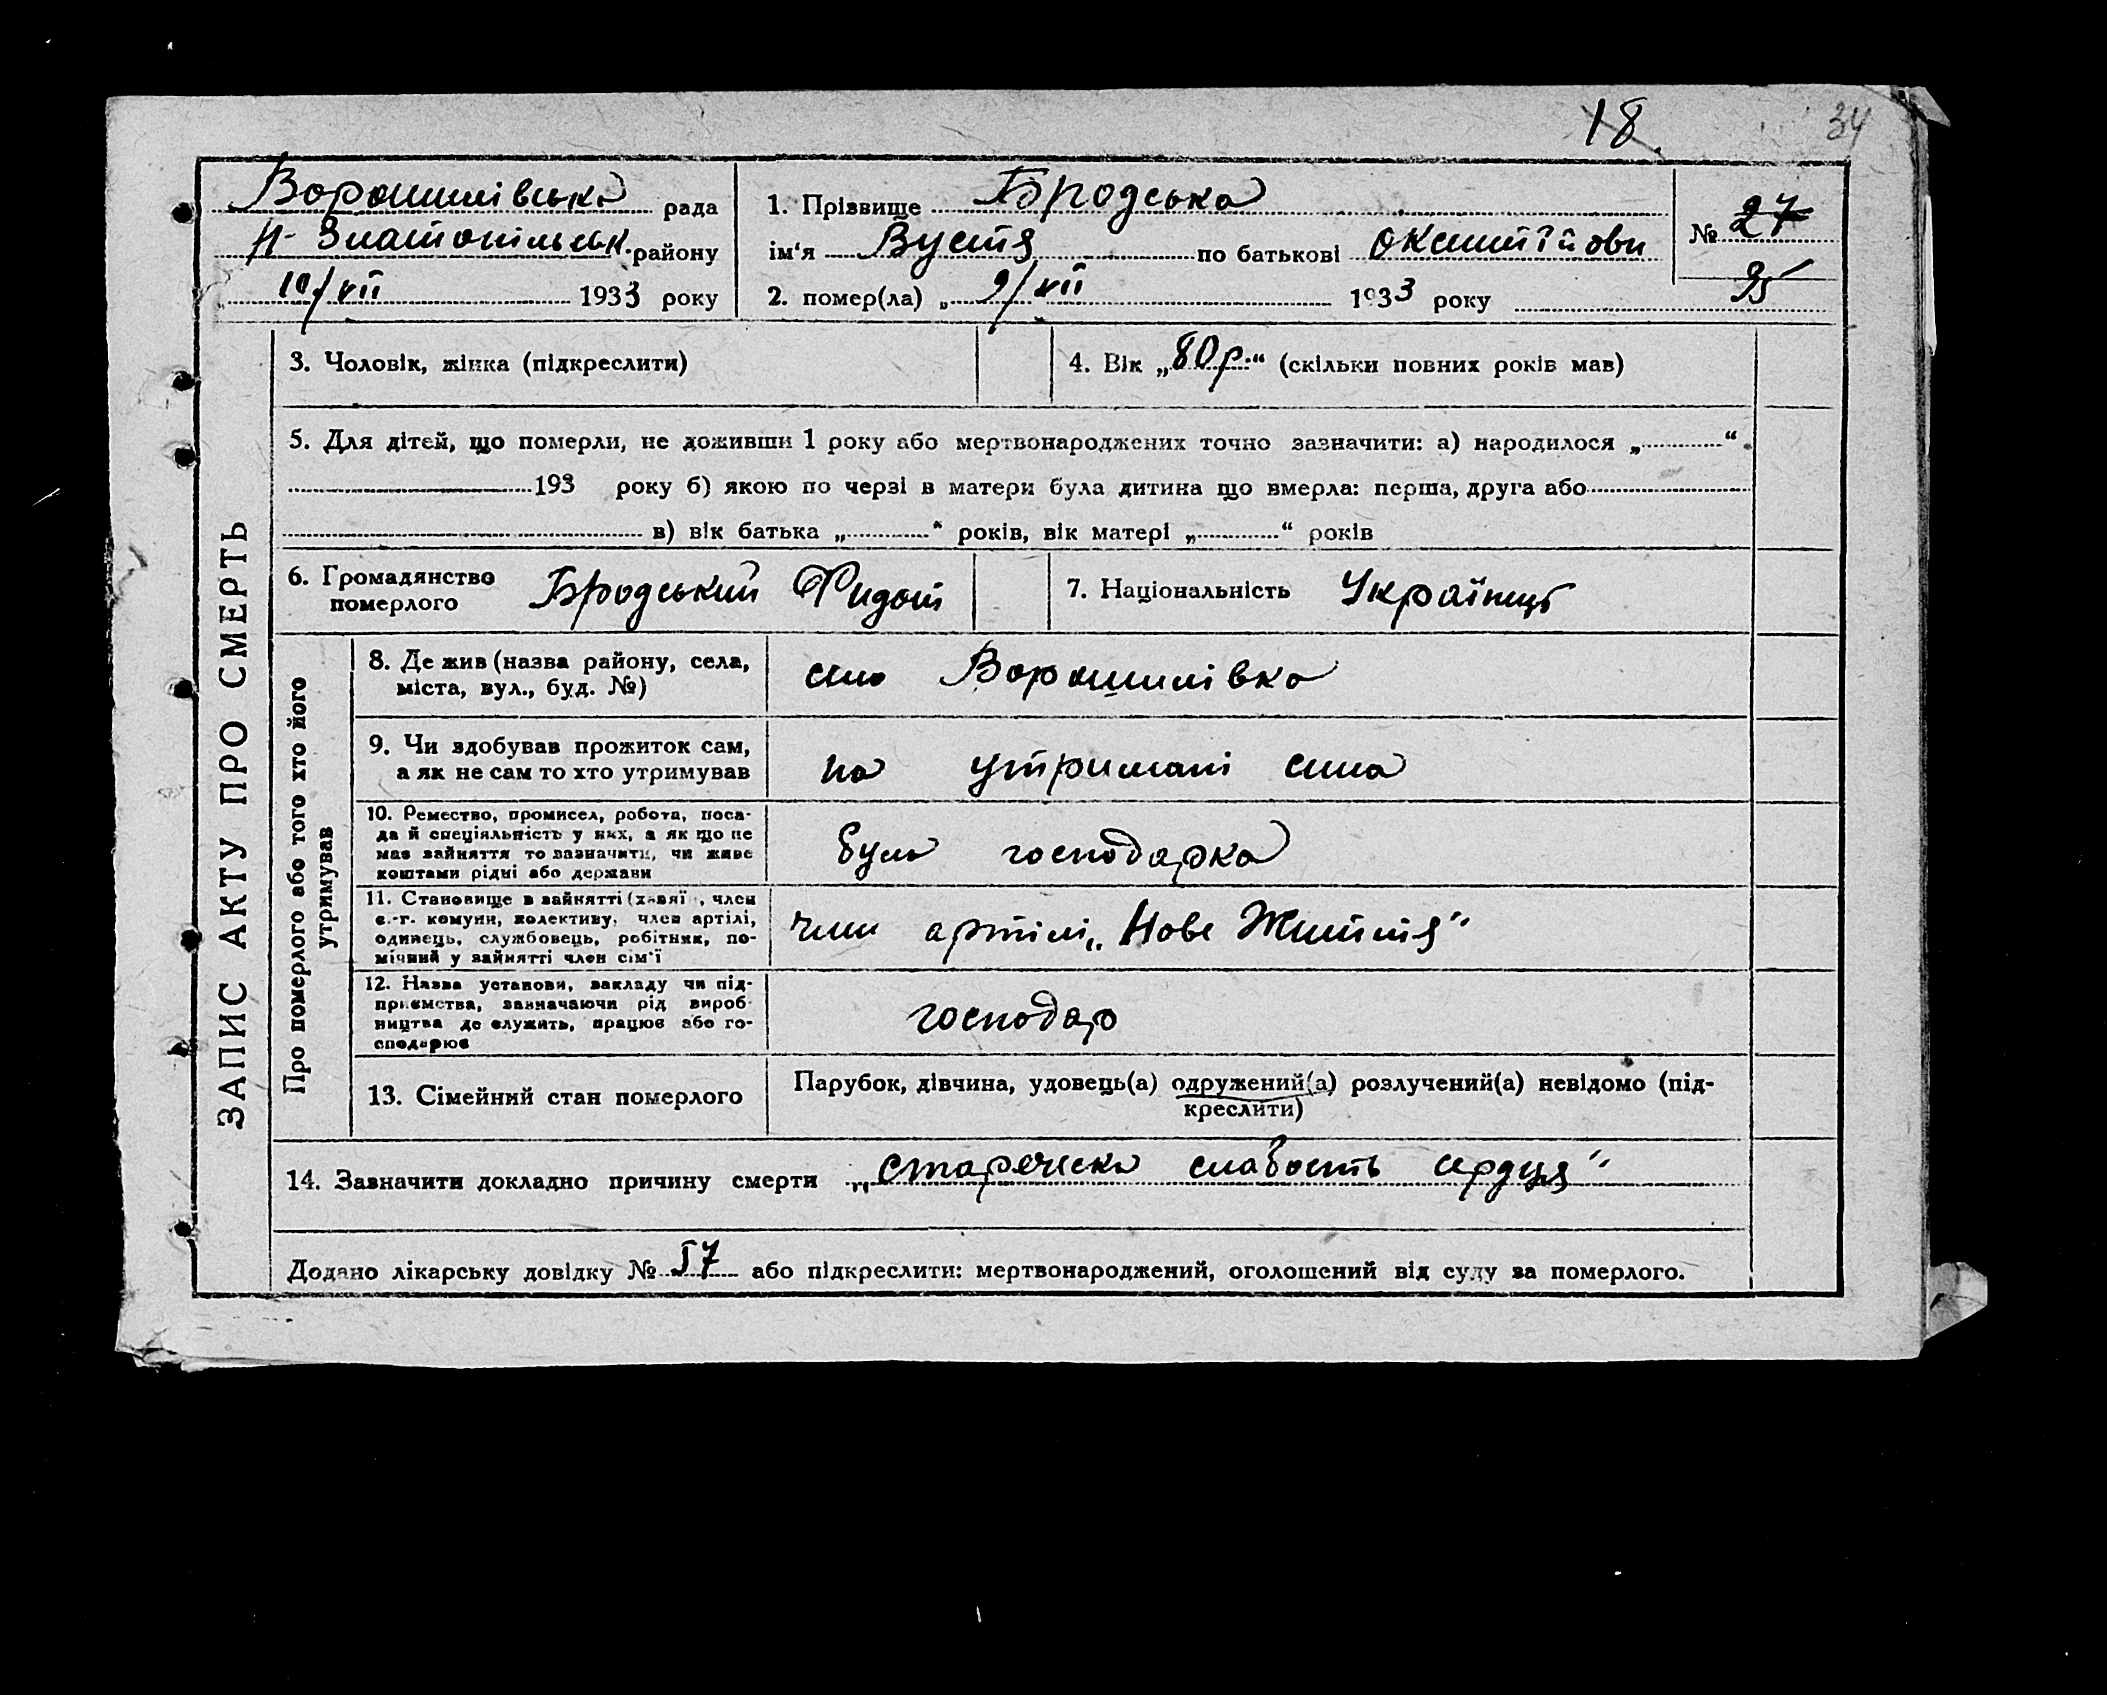 18
34
Ворошилівська рада
Н-Златопільськ. району
10/VII 1933 року
1. Прізвище Бродська
ім'я Вустя по батькові
2. помер(ла) „ 9/VII 1933 року
№ 27
95
ЗАПИС АКТУ ПРО СМЕРТЬ
3. Чоловік, жінка (підкреслити)
4. Вік „80 р.“ (скільки повних років мав)
5. Для дітей, що померли, не доживши 1 року або мертвонароджених точно зазначити: а) народилося „ “
193 року б) якою по черзі в матери була дитина що вмерла: перша, друга або
в) вік батька „ “ років, вік матері „ “ років
6. Громадянство
померлого Бродський Фидот
7. Національність Українць
Про померлого або того хто його
утримував
8. Де жив (назва району, села,
міста, вул., буд. №)
село Ворошилівка
9. Чи здобував прожиток сам,
а як не сам то хто утримував
на утримані сина
10. Ремество, промисел, робота, поса-
да й спеціяльність у них, а як що не
мав зайняття то зазначити, чи живе
коштами рідні або держави
була господарка
11. Становище в зайнятті (хазяї , член
с.-г. комуни, колективу, член артілі,
одинець, службовець, робітник, по-
мічний у зайнятті член сім'ї
член артілі „Нове Життія“
12. Назва установи, закладу чи під-
приємства, зазначаючи рід вироб-
ництва де служить, працює або го-
сподарює
господар
13. Сімейний стан померлого
Парубок, дівчина, удовець(а) одружений(а) розлучений(а) невідомо (під-
креслити)
14. Зазначити докладно причину смерти „старечиска слабость сердця“
Додано лікарську довідку № 57 або підкреслити: мертвонароджений, оголошений від суду за померлого.